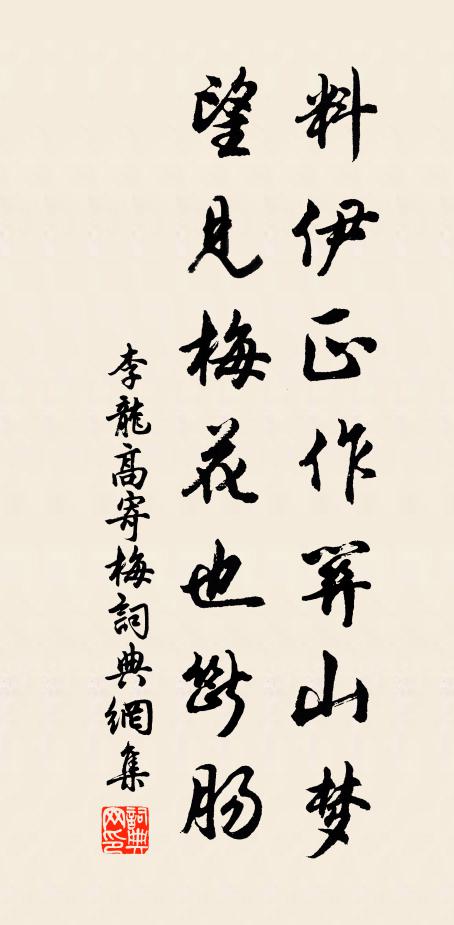 料伊正作關山梦
望見梅花也斷肠
李龍高寄梅詞典網集
詞典网印